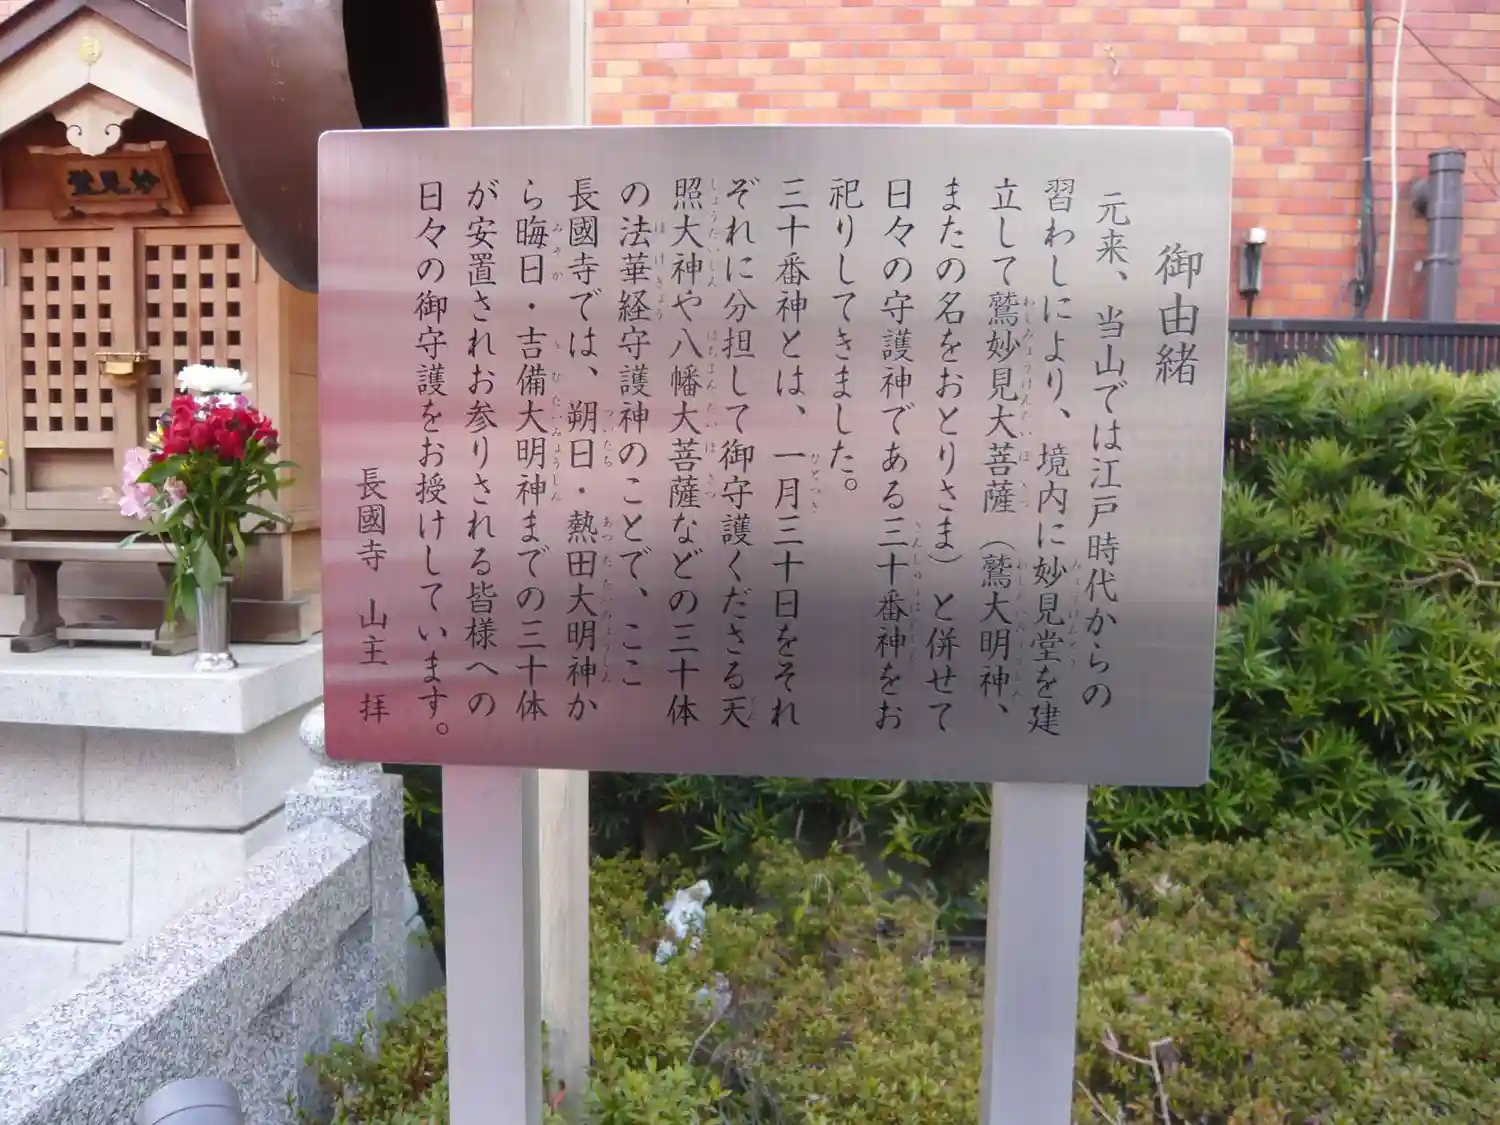 御由緒
元来、当山では江戸時代からの
習わしにより、境内に妙見堂を建
立して鷲妙見大菩薩（鷲大明神、
またの名をおとりさま）と併せて
日々の守護神である三十番神をお
祀りしてきました。
三十番神とは、一月三十日をそれ
ぞれに分担して御守護くださる天
照大神や八幡大菩薩などの三十体
の法華経守護神のことで、ここ
長國寺では、朔日・熱田大明神か
ら晦日・吉備大明神までの三十体
が安置されお参りされる皆様への
日々の御守護をお授けしています。
長國寺 山主 拝
妙見堂